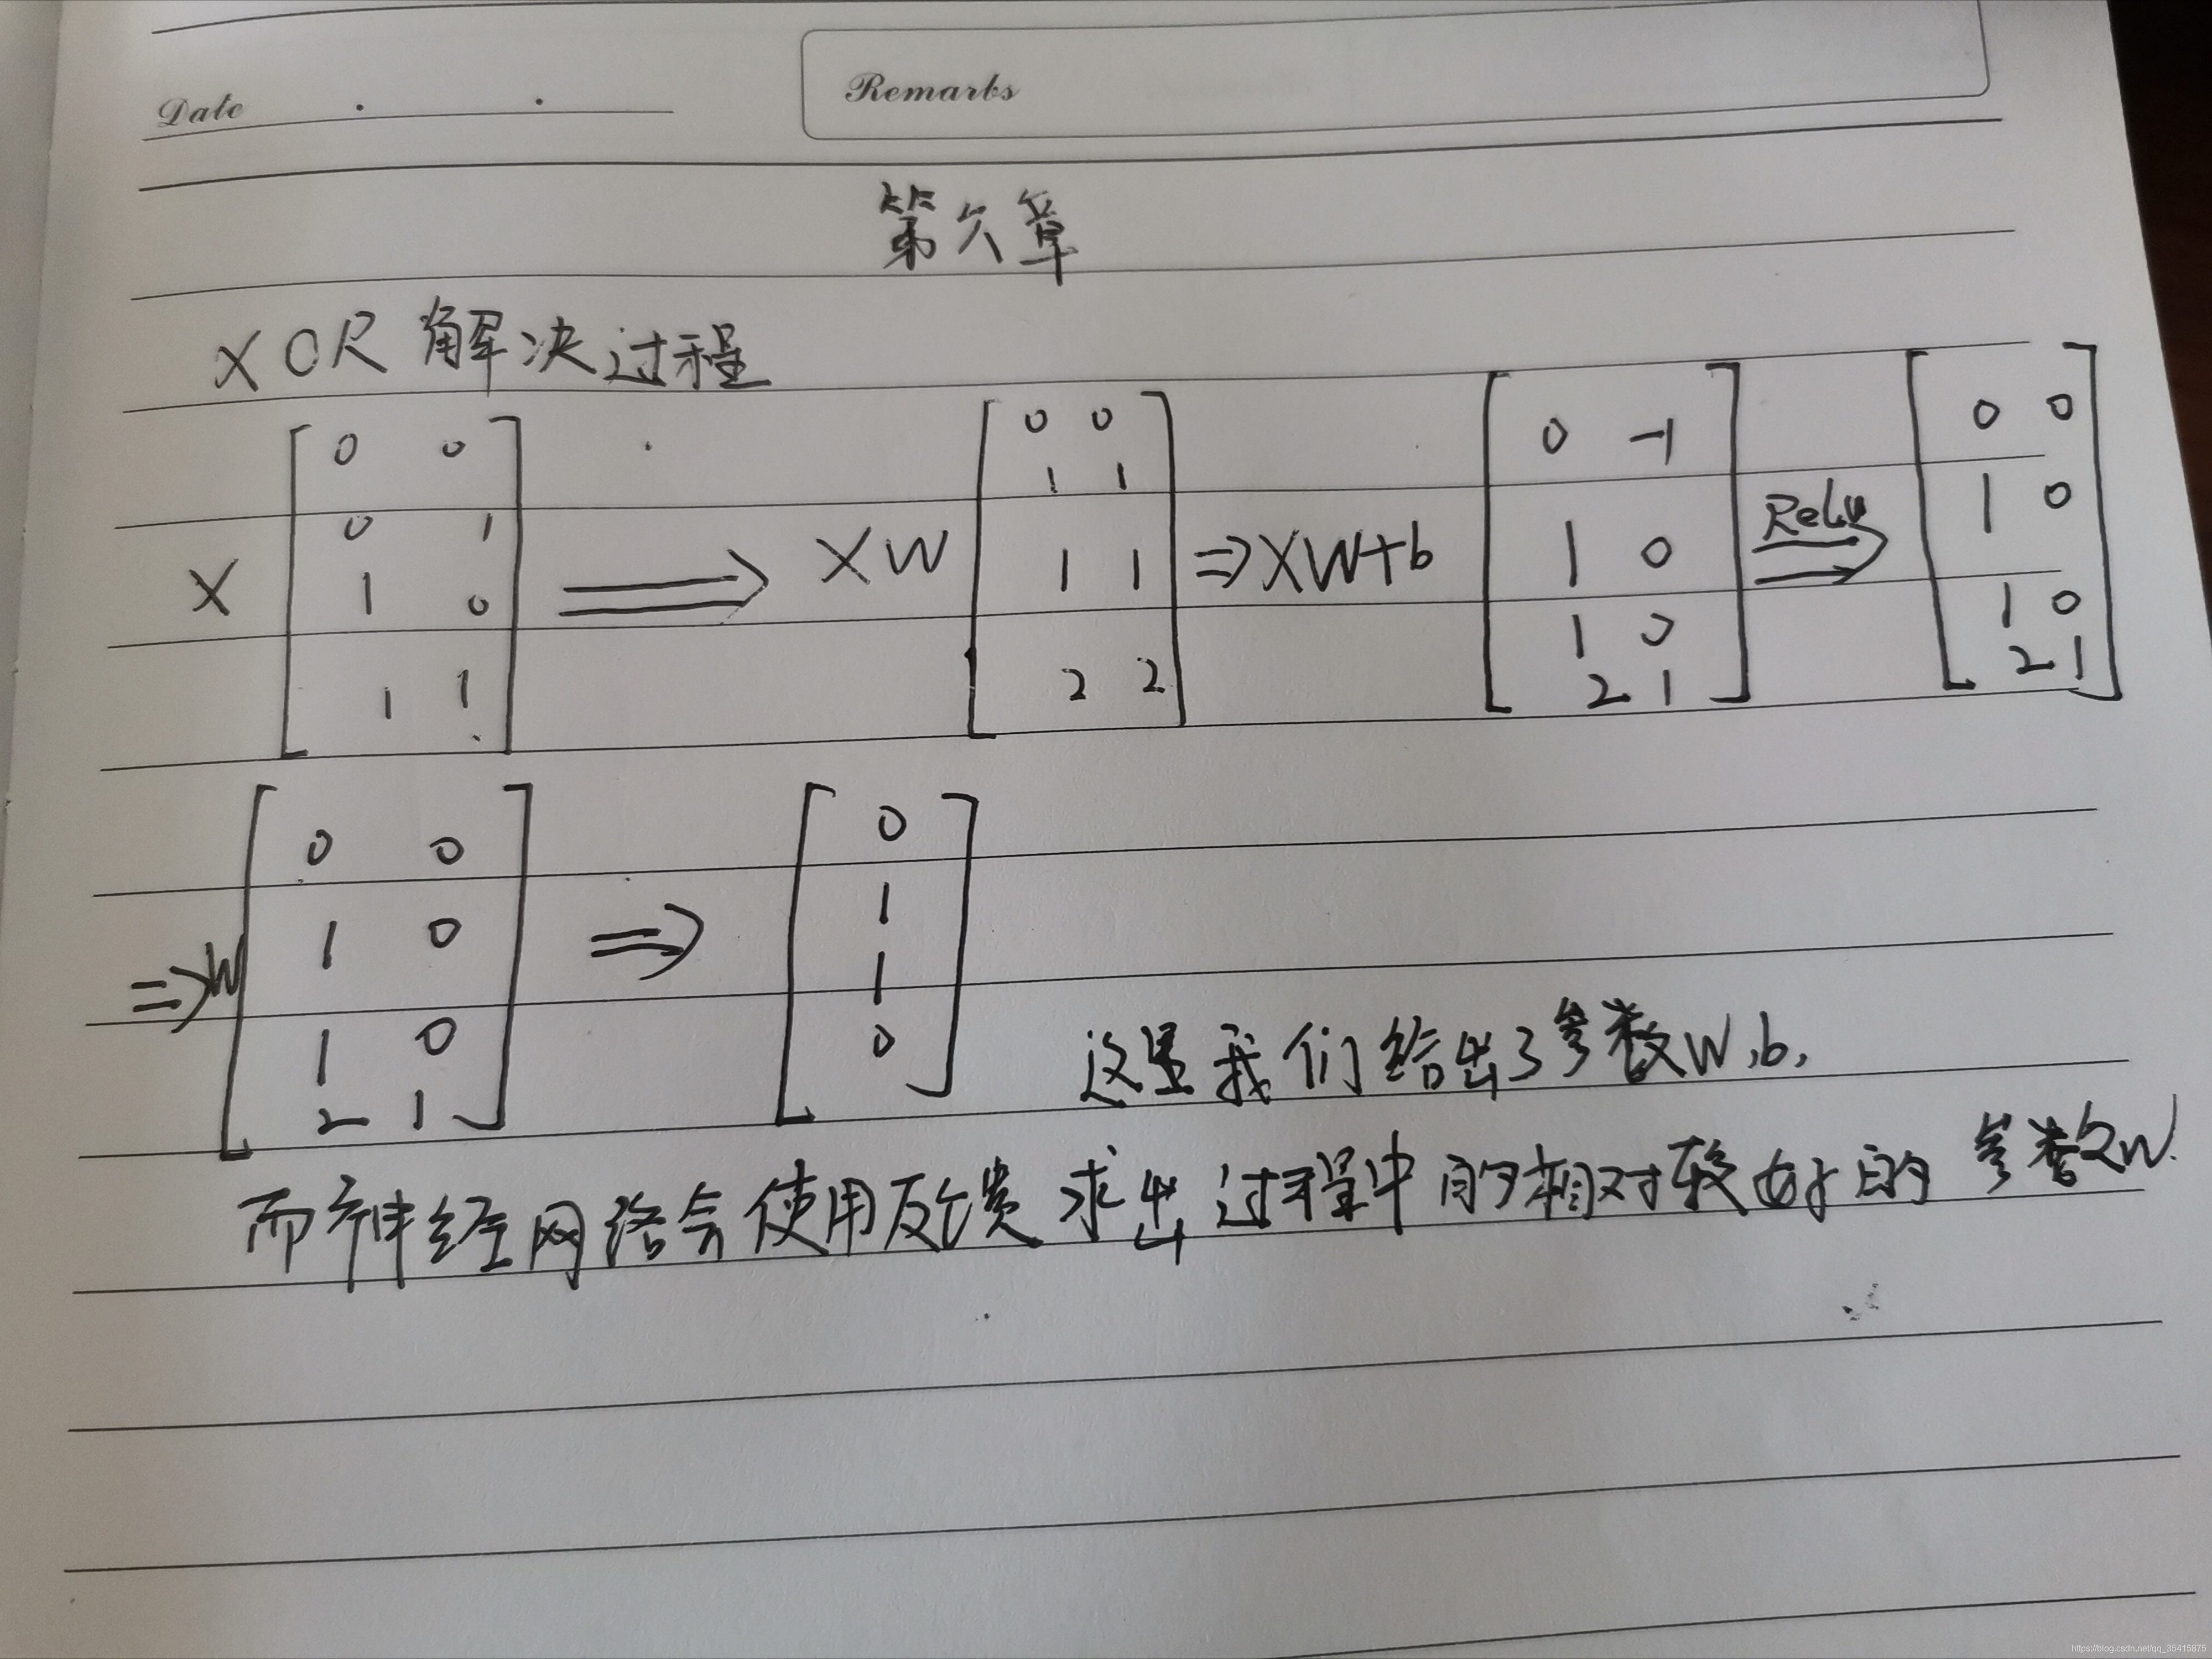 Date
Remarks
第六章
XOR 解决过程
X [ 0 0 ; 0 1 ; 1 0 ; 1 1 ] ⟹ XW [ 0 0 ; 1 1 ; 1 1 ; 2 2 ] ⇒ XW+b [ 0 -1 ; 1 0 ; 1 0 ; 2 1 ] Relu ⟹ [ 0 0 ; 1 0 ; 1 0 ; 2 1 ]
⇒ W [ 0 0 ; 1 0 ; 1 0 ; 2 1 ] ⇒ [ 0 ; 1 ; 1 ; 0 ]
这里我们给出了参数W,b,
而神经网络会使用反馈求出过程中的相对较好的参数W.
https://blog.csdn.net/qq_35415875